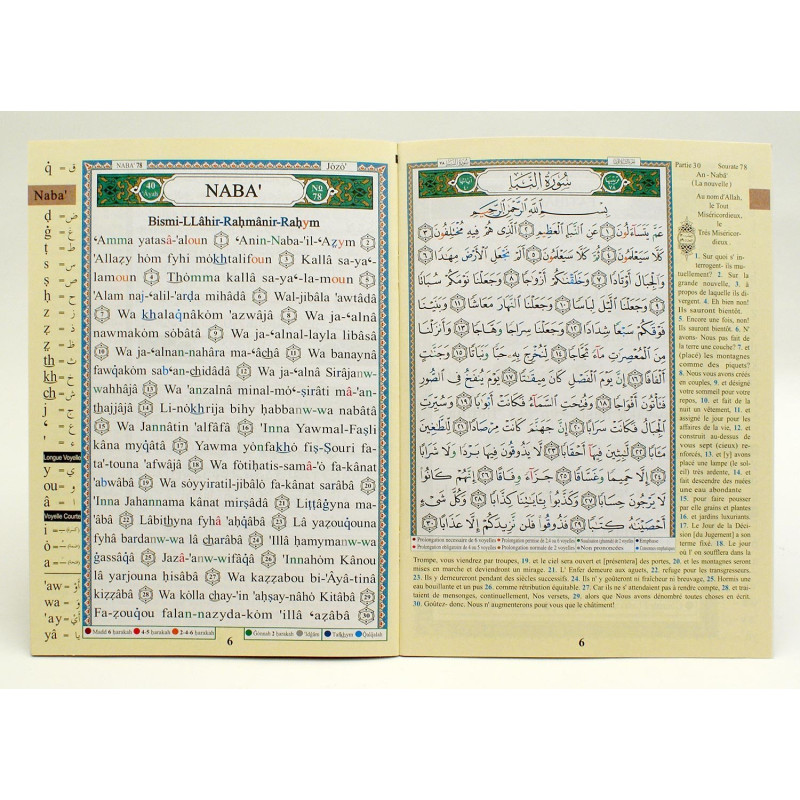 NABA' 78
Jôzô'
40
Âyah
NABA'
No
78
Bismi-LLâhir-Raḥmânir-Raḥym
'Amma yatasâ-'aloun 1 'Anin-Naba-'il-'Aẓym 2
'Allaẓy hòm fyhi mòkhtalifoun 3 Kallâ sa-ya'-
lamoun 4 Thòmma kallâ sa-ya'-la-moun 5
'Alam naj-'alil-'arḍa mihâdâ 6 Wal-jibâla 'awtâdâ
7 Wa khalaqnâkòm 'azwâjâ 8 Wa ja-'alnâ
nawmakòm sòbâtâ 9 Wa ja-'alnal-layla libâsâ
10 Wa ja-'alnan-nahâra ma-'âchâ 11 Wa banaynâ
fawqakòm sab'an-chidâdâ 12 Wa ja-'alnâ Sirâjanw-
wahhâjâ 13 Wa 'anzalnâ minal-mò'-ṣirâti mâ-'an-
thajjâjâ 14 Li-nòkhrija bihy ḥabbanw-wa nabâtâ
15 Wa Jannâtin 'alfâfâ 16 'Inna Yawmal-Faṣli
kâna myqâtâ 17 Yawma yònfakhò fiṣ-Ṣouri fa-
ta'-touna 'afwâjâ 18 Wa fòtiḥatis-samâ-'ò fa-kânat
'abwâbâ 19 Wa sòyyiratil-jibâlò fa-kânat sarâbâ 20
'Inna Jahannama kânat mirṣâdâ 21 Liṭṭâġyna ma-
'âbâ 22 Lâbithyna fyhâ 'aḥqâbâ 23 Lâ yaẓouqouna
fyhâ bardanw-wa lâ charâbâ 24 'Illâ ḥamymanw-wa
ġassâqâ 25 Jazâ-'anw-wifâqâ 26 'Innahòm Kânou
lâ yarjouna ḥisâbâ 27 Wa kaẓẓabou bi-'Âyâ-tinâ
kiẓẓâbâ 28 Wa kòlla chay-'in 'aḥṣay-nâhò Kitâbâ 29
Fa-ẓouqou falan-nazyda-kòm 'illâ 'aẓâbâ 30
Madd 6 ḥarakah 4-5 ḥarakah 2-4-6 ḥarakah Ġonnah 2 ḥarakah 'Idġâm Tafkhym Qalqalah
6
q̇ = ق
Naba'
ḍ = ض
ġ = غ
ṭ = ط
s = س
ṣ = ص
ḥ = ح
z = ز
ẓ = ذ
ẓ = ظ
th = ث
kh = خ
ch = ش
j = ج
' = ع
' = ء
Longue Voyelle
y = ي
ou = و
â = ا
Voyelle Courte
i =
ò =
a =
'aw = أو
wa = و
'ay = أي
yâ = يا
سُورَةُ النَّبَإِ
بِسْمِ اللَّهِ الرَّحْمَٰنِ الرَّحِيمِ
عَمَّ يَتَسَاءَلُونَ ١ عَنِ النَّبَإِ الْعَظِيمِ ٢ الَّذِي هُمْ فِيهِ مُخْتَلِفُونَ ٣
كَلَّا سَيَعْلَمُونَ ٤ ثُمَّ كَلَّا سَيَعْلَمُونَ ٥ أَلَمْ نَجْعَلِ الْأَرْضَ مِهَادًا ٦
وَالْجِبَالَ أَوْتَادًا ٧ وَخَلَقْنَاكُمْ أَزْوَاجًا ٨ وَجَعَلْنَا نَوْمَكُمْ سُبَاتًا
٩ وَجَعَلْنَا اللَّيْلَ لِبَاسًا ١٠ وَجَعَلْنَا النَّهَارَ مَعَاشًا ١١ وَبَنَيْنَا
فَوْقَكُمْ سَبْعًا شِدَادًا ١٢ وَجَعَلْنَا سِرَاجًا وَهَّاجًا ١٣ وَأَنزَلْنَا
مِنَ الْمُعْصِرَاتِ مَاءً ثَجَّاجًا ١٤ لِّنُخْرِجَ بِهِ حَبًّا وَنَبَاتًا ١٥ وَجَنَّاتٍ
أَلْفَافًا ١٦ إِنَّ يَوْمَ الْفَصْلِ كَانَ مِيقَاتًا ١٧ يَوْمَ يُنفَخُ فِي الصُّورِ
فَتَأْتُونَ أَفْوَاجًا ١٨ وَفُتِحَتِ السَّمَاءُ فَكَانَتْ أَبْوَابًا ١٩ وَسُيِّرَتِ
الْجِبَالُ فَكَانَتْ سَرَابًا ٢٠ إِنَّ جَهَنَّمَ كَانَتْ مِرْصَادًا ٢١ لِّلطَّاغِينَ
مَآبًا ٢٢ لَّابِثِينَ فِيهَا أَحْقَابًا ٢٣ لَّا يَذُوقُونَ فِيهَا بَرْدًا وَلَا شَرَابًا
٢٤ إِلَّا حَمِيمًا وَغَسَّاقًا ٢٥ جَزَاءً وِفَاقًا ٢٦ إِنَّهُمْ كَانُوا
لَا يَرْجُونَ حِسَابًا ٢٧ وَكَذَّبُوا بِآيَاتِنَا كِذَّابًا ٢٨ وَكُلَّ شَيْءٍ
أَحْصَيْنَاهُ كِتَابًا ٢٩ فَذُوقُوا فَلَن نَّزِيدَكُمْ إِلَّا عَذَابًا ٣٠
Prolongation nécessaire de 6 voyelles Prolongation permise de 2,4 ou 6 voyelles Nasalisation (ghunnah) de 2 voyelles Emphase
Prolongation obligatoire de 4 ou 5 voyelles Prolongation normale de 2 voyelles Non prononcées Consonnes emphatiques
Partie 30 Sourate 78
An - Nabâ'
(La nouvelle)
Au nom d'Allah,
le Tout
Miséricordieux,
le
Très Miséricor-
dieux.
1. Sur quoi s' in-
terrogent- ils mu-
tuellement? 2. Sur la
grande nouvelle, 3. à
propos de laquelle ils di-
vergent. 4. Eh bien non!
Ils sauront bientôt.
5. Encore une fois, non!
Ils sauront bientôt. 6. N'
avons- Nous pas fait de
la terre une couche? 7. et
(placé) les montagnes
comme des piquets?
8. Nous vous avons créés
en couples, 9. et désigné
votre sommeil pour votre
repos, 10. et fait de la
nuit un vêtement, 11. et
assigné le jour pour les
affaires de la vie, 12. et
construit au-dessus de
vous sept (cieux) ren-
forcés, 13. et [y] avons
placé une lampe (le sol-
eil) très ardente, 14. et
fait descendre des nuées
une eau abondante
15. pour faire pousser
par elle grains et plantes
16. et jardins luxuriants.
17. Le Jour de la Décisi-
on [du Jugement] a son
terme fixé. 18. Le jour
où l' on soufflera dans la
Trompe, vous viendrez par troupes, 19. et le ciel sera ouvert et [présentera] des portes, 20. et les montagnes seront
mises en marche et deviendront un mirage. 21. L' Enfer demeure aux aguets, 22. refuge pour les transgresseurs.
23. Ils y demeureront pendant des siècles successifs. 24. Ils n' y goûteront ni fraîcheur ni breuvage, 25. Hormis une
eau bouillante et un pus 26. comme rétribution équitable. 27. Car ils ne s'attendaient pas à rendre compte, 28. et trai-
taient de mensonges, continuellement, Nos versets, 29. alors que Nous avons dénombré toutes choses en écrit.
30. Goûtez- donc, Nous n' augmenterons pour vous que le châtiment!
6